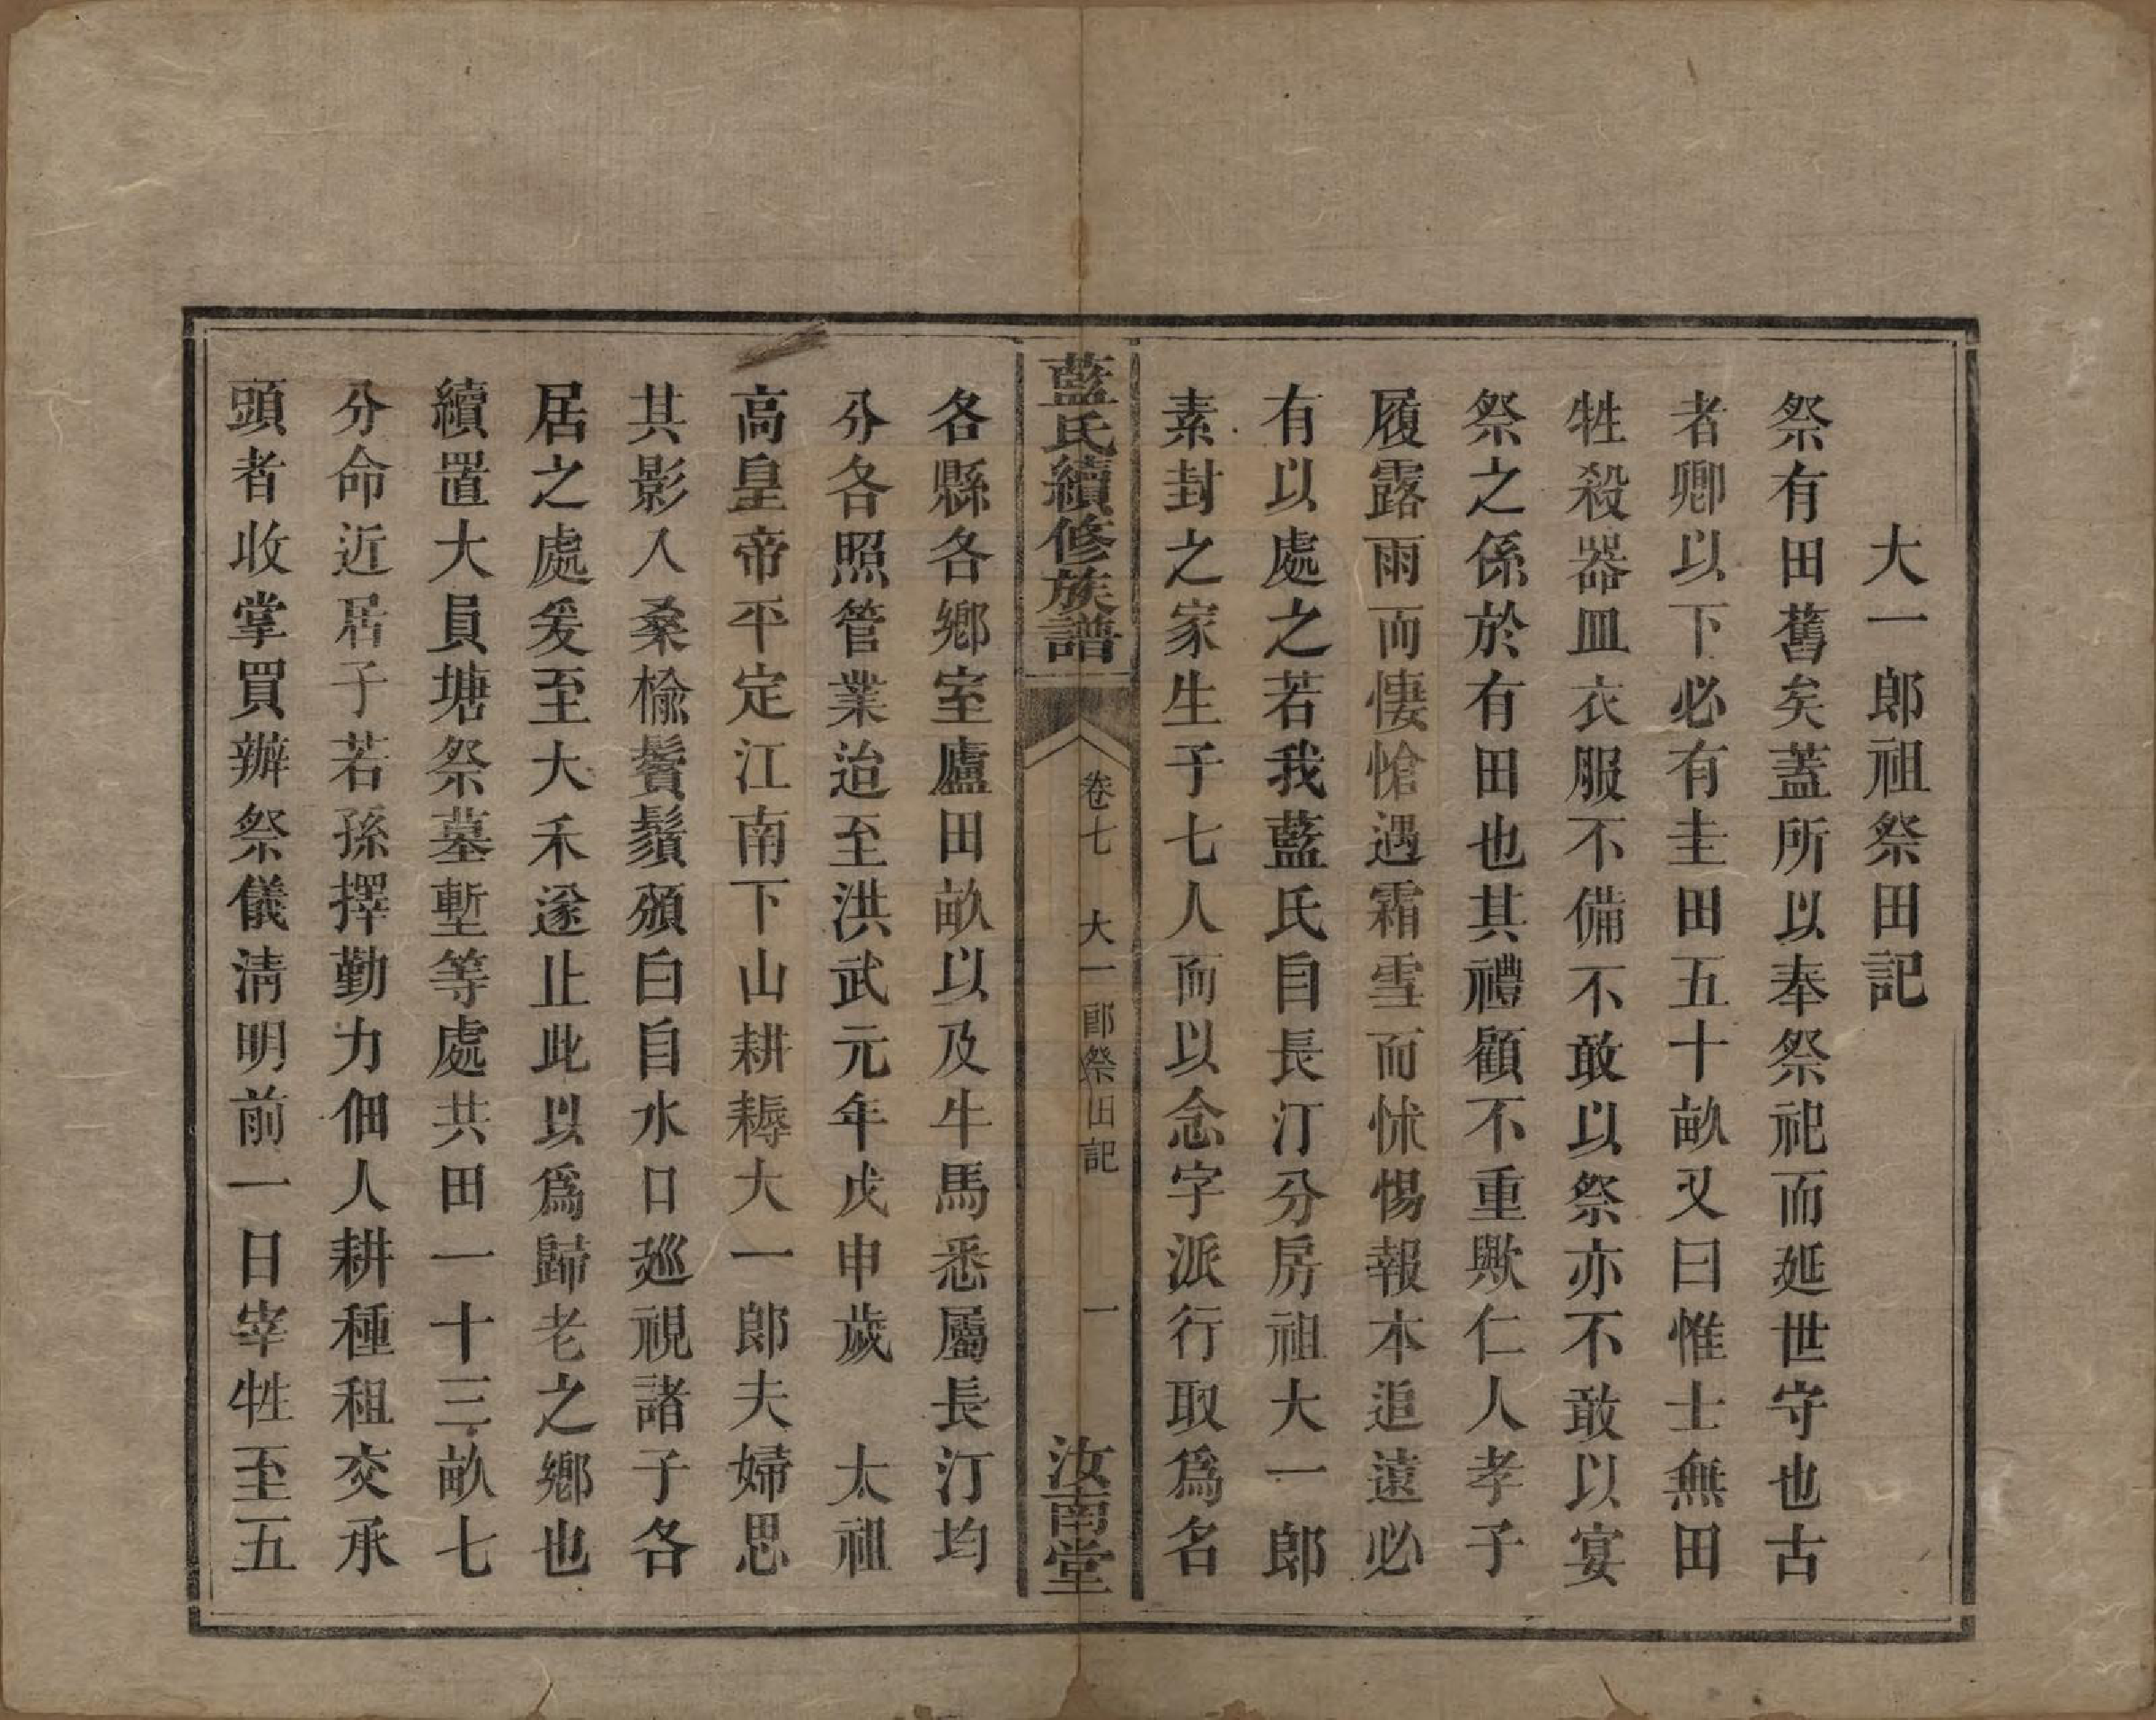 大一郎祖祭田記
祭有田舊矣蓋所以奉祭祀而延世守也古
者卿以下必有圭田五十畝又曰惟士無田
牲殺器皿衣服不備不敢以祭亦不敢以宴
祭之係於有田也其禮顧不重歟仁人孝子
履露雨而悽愴遇霜雪而怵惕報本追遠必
有以處之若我藍氏自長汀分房祖大一郎
素封之家生子七人而以念字派行取爲名
藍氏續修族譜
卷七 大一郎祭田記 一
汝南堂
各縣各鄉室廬田畝以及牛馬悉屬長汀均
分各照管業迨至洪武元年戊申歲 太祖
高皇帝平定江南下山耕耨大一郎夫婦思
其影入桑榆鬢鬚頒白自水口廵視諸子各
居之處爰至大禾遂止此以爲歸老之鄉也
續置大員塘祭墓塹等處共田一十三畝七
分命近居子若孫擇勤力佃人耕種租交承
頭者收掌買辦祭儀淸明前一日宰牲至五